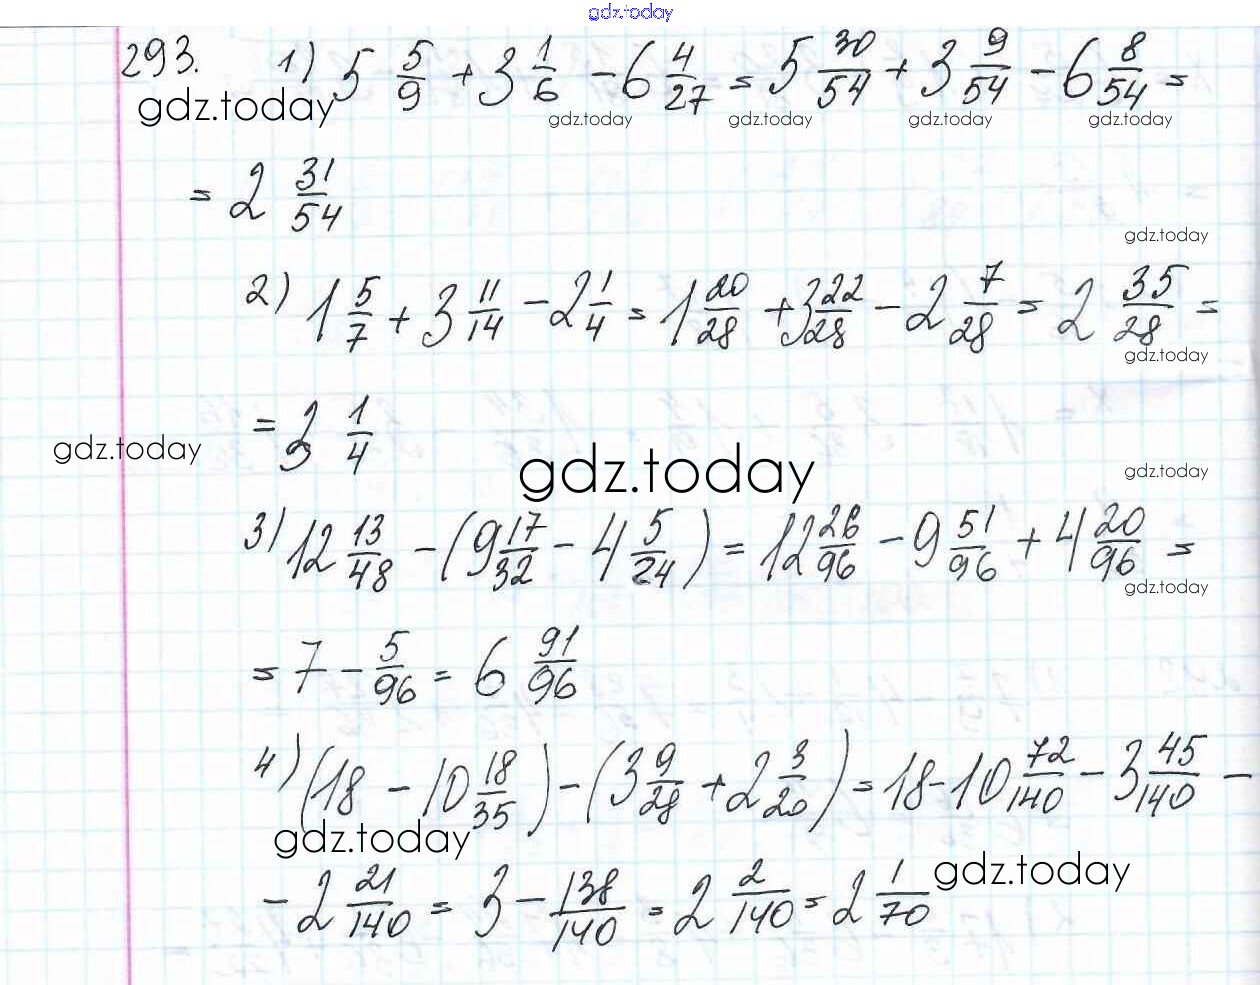 gdz.today
293. 1) 5 5/9 + 3 1/6 - 6 4/27 = 5 30/54 + 3 9/54 - 6 8/54 =
gdz.today gdz.today gdz.today gdz.today gdz.today
= 2 31/54
gdz.today
2) 1 5/7 + 3 11/14 - 2 1/4 = 1 20/28 + 3 22/28 - 2 7/28 = 2 35/28 =
gdz.today
= 3 1/4
gdz.today gdz.today gdz.today
3) 12 13/48 - (9 17/32 - 4 5/24) = 12 26/96 - 9 51/96 + 4 20/96 =
gdz.today
= 7 - 5/96 = 6 91/96
4) (18 - 10 18/35) - (3 9/28 + 2 3/20) = 18 - 10 72/140 - 3 45/140 -
gdz.today gdz.today
- 2 21/140 = 3 - 138/140 = 2 2/140 = 2 1/70